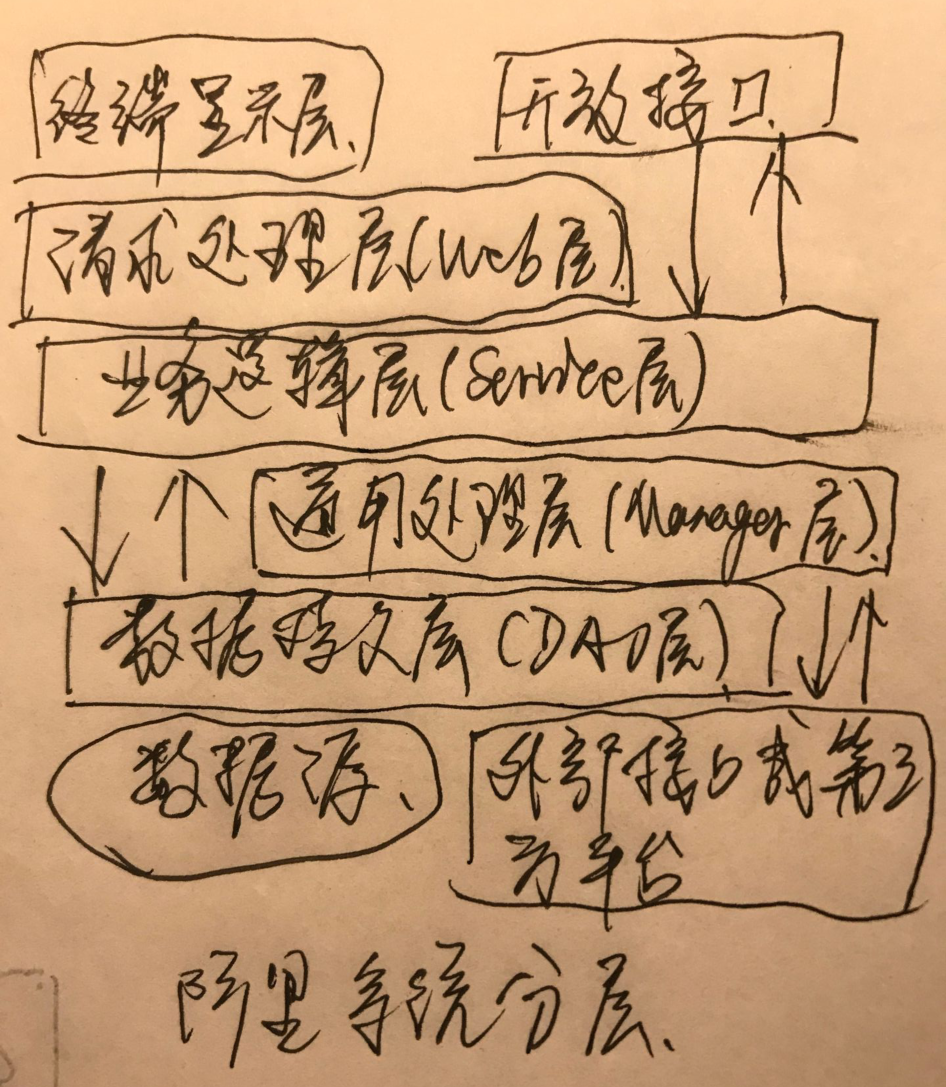 终端显示层、
开放接口、
请求处理层(Web层)
业务逻辑层(Service层)
通用处理层(Manager层)、
数据持久层(DAO层)
数据源、
外部接口或第三
方平台
阿里系统分层、